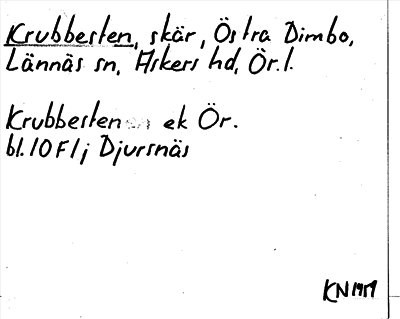 Krubbesten, skär, Östra Dimbo,
Lännäs sn, Askers hd, Ör. l.
Krubbesten ek Ör.
bl. 10 F 1 j Djursnäs